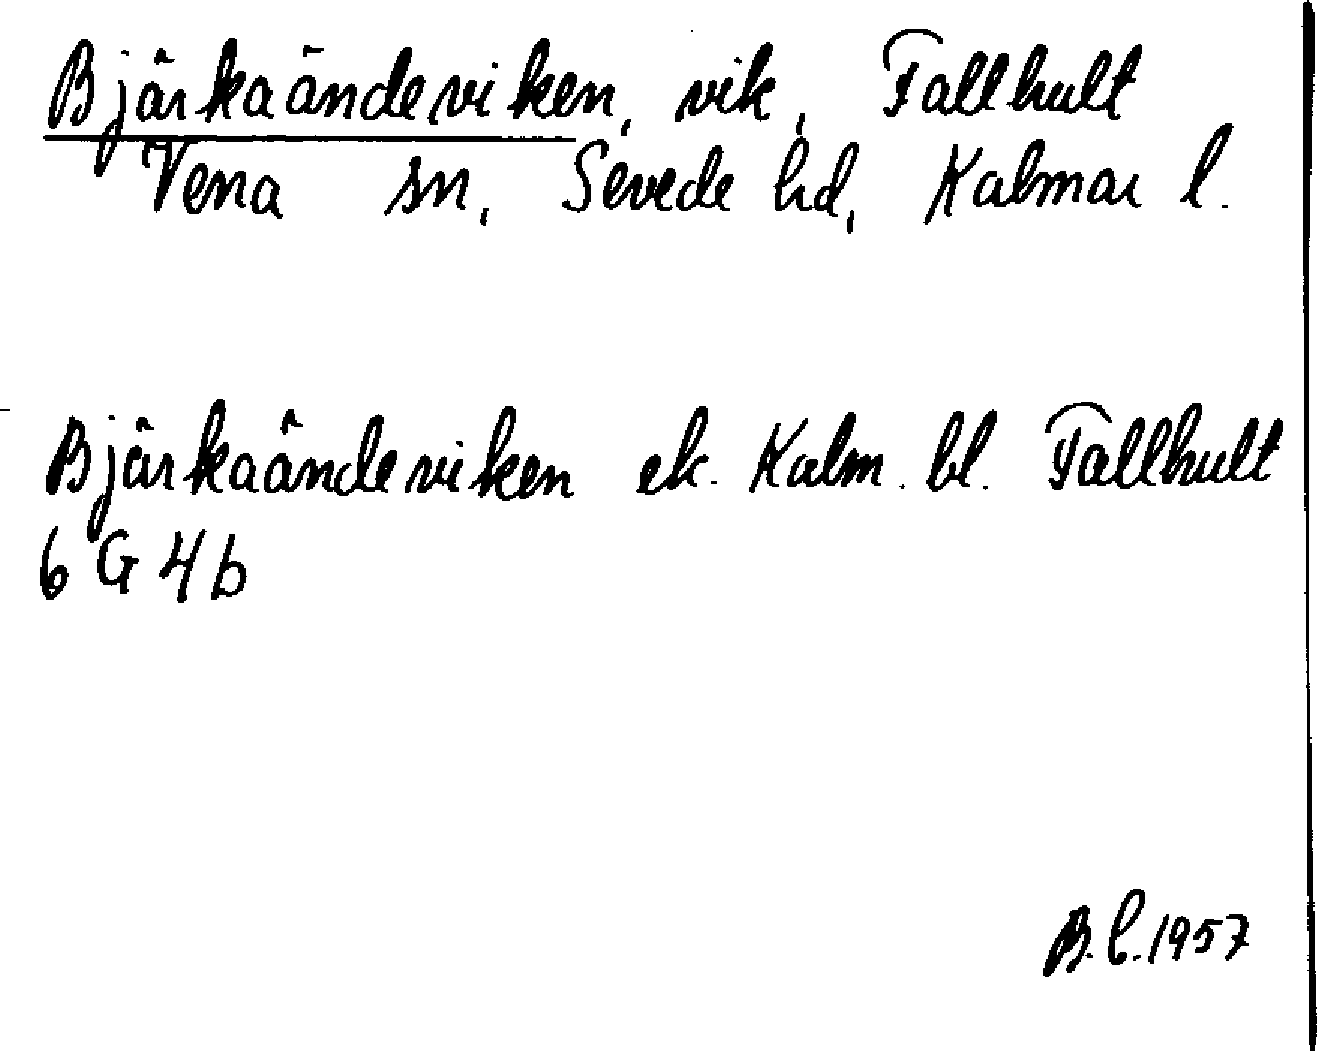 Bjärkaändeviken, vik, Fallhult
Vena sn, Sevede hd, Kalmar l.
Bjärkaändeviken ek. Kalm. bl. Fallhult
6 G 4 b
B.L. 1957